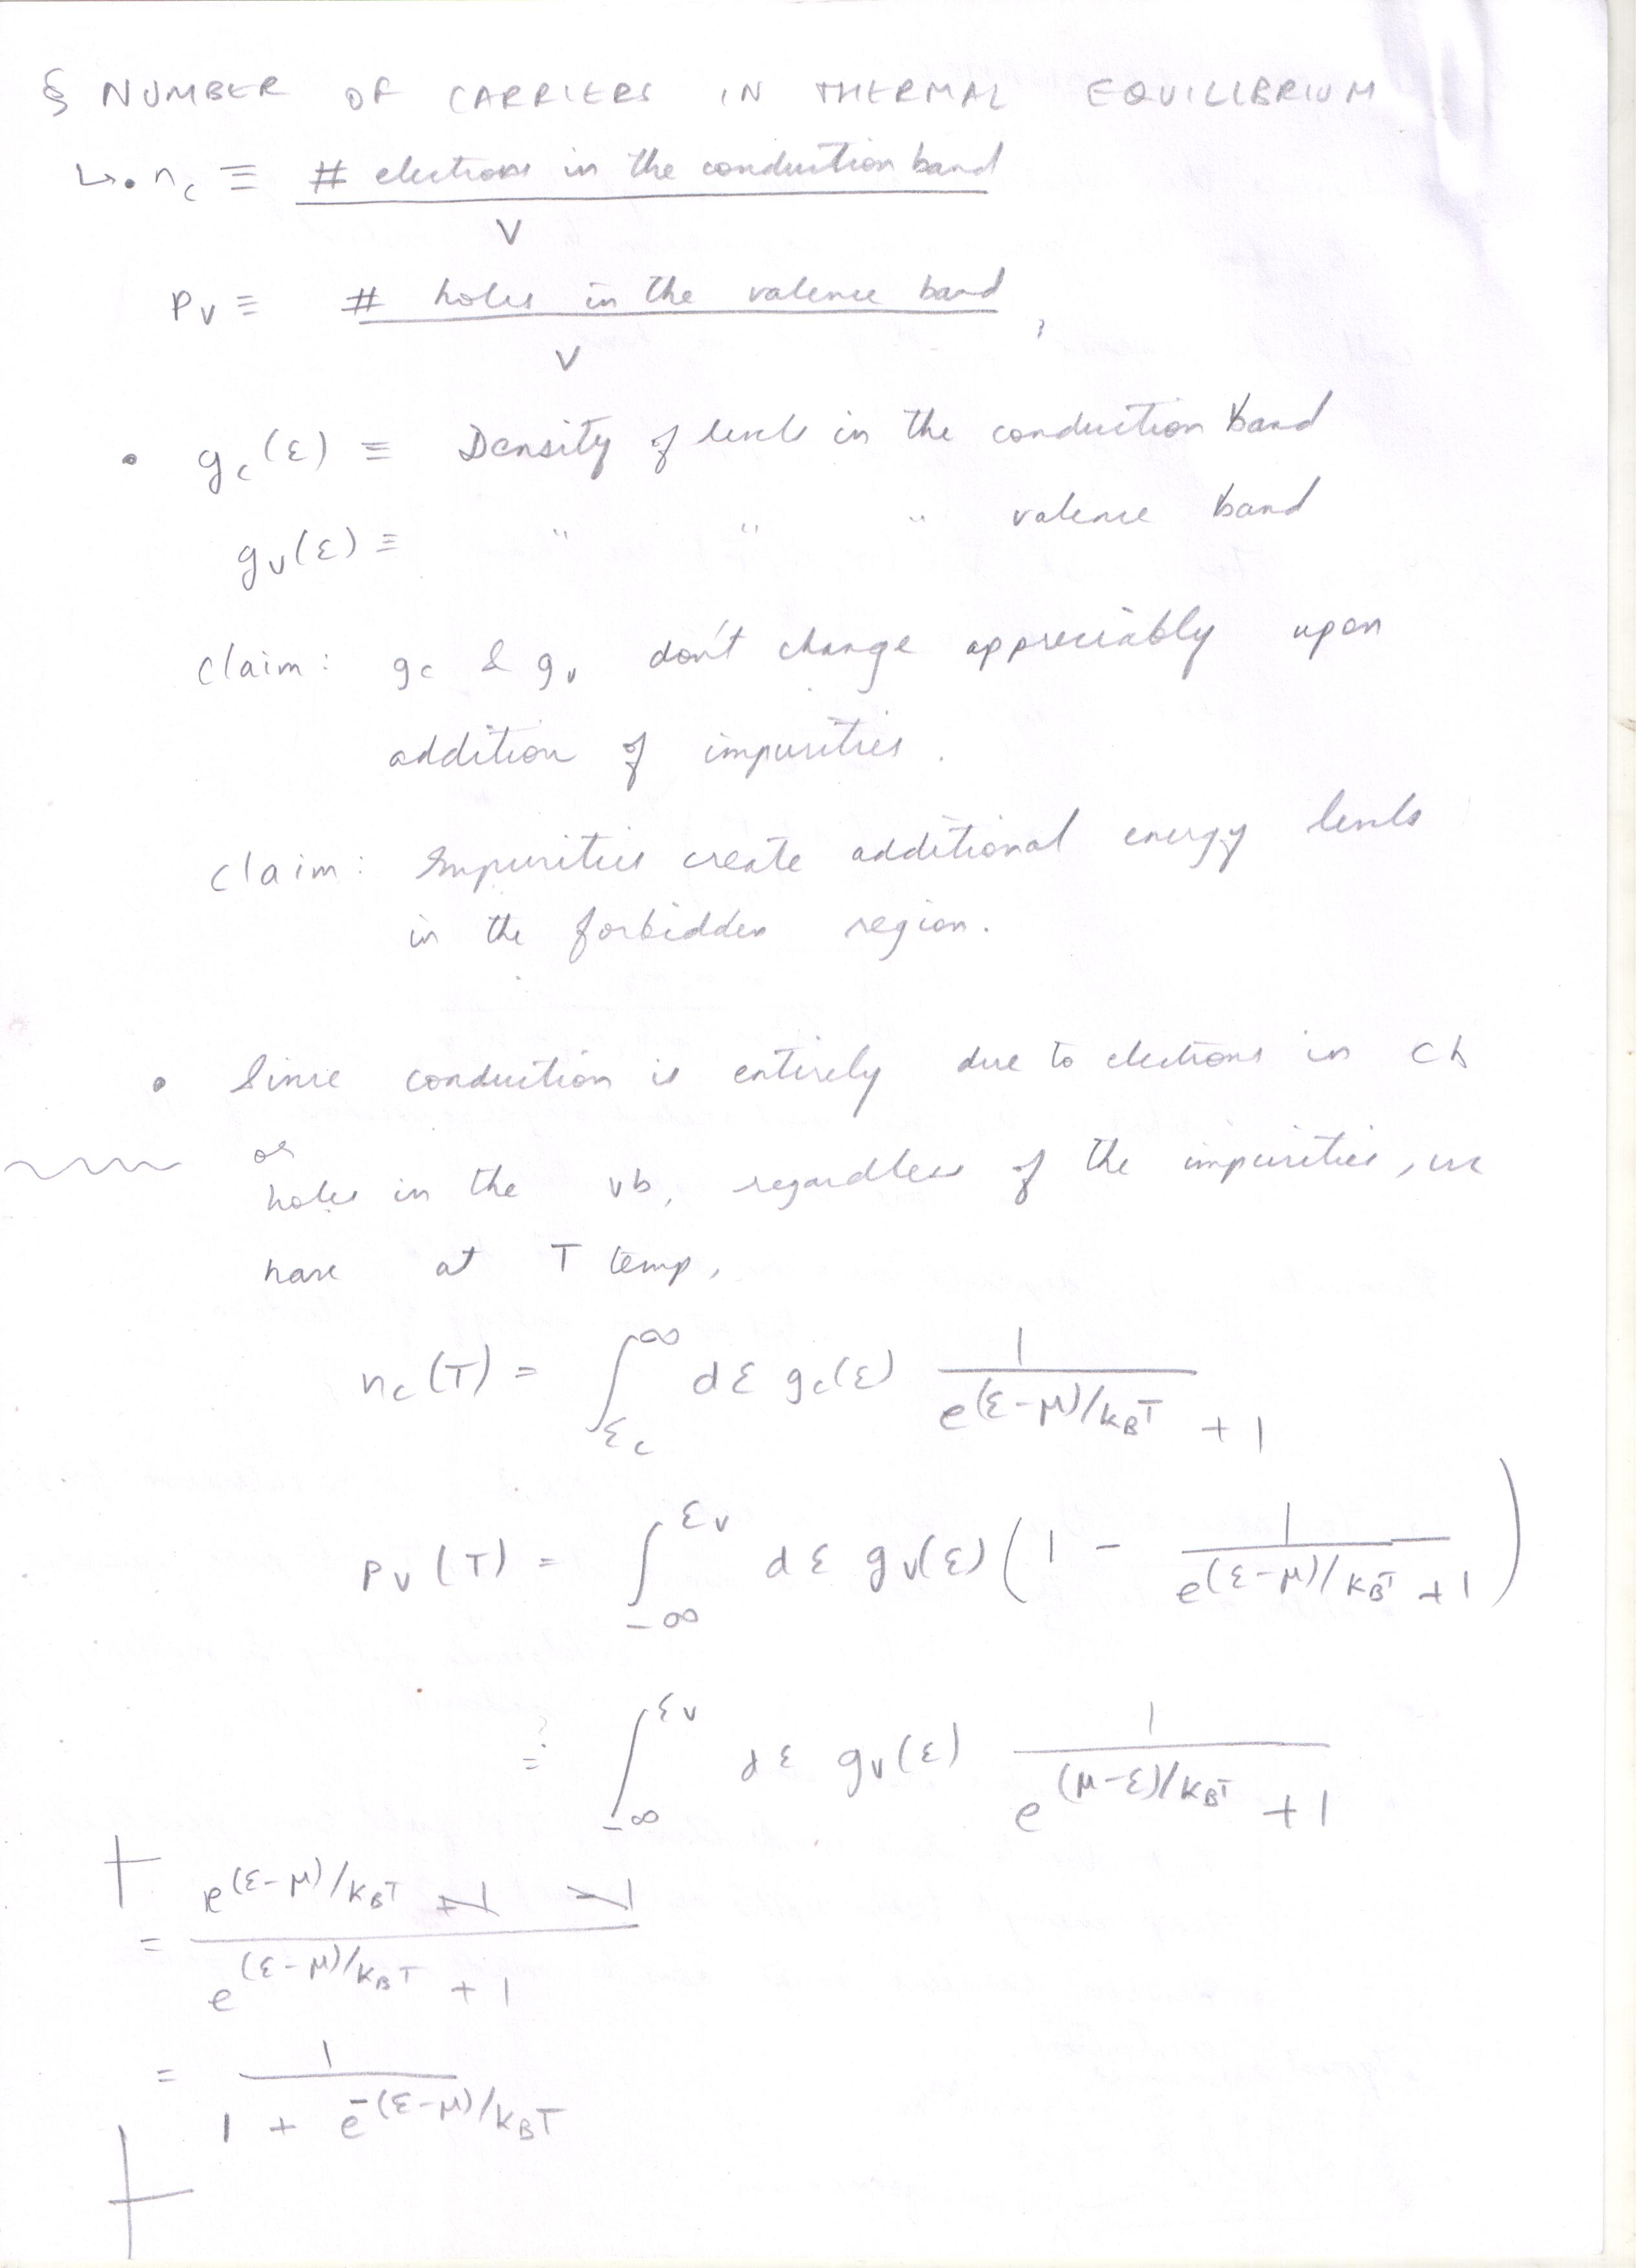 § NUMBER OF CARRIERS IN THERMAL EQUILIBRIUM
↳• n_c ≡ # electrons in the conduction band
V
P_V ≡ # holes in the valence band ,
V
• g_c(ε) ≡ Density of levels in the conduction band
g_v(ε) ≡ " " " valence band
Claim: g_c & g_v don't change appreciably upon
addition of impurities.
Claim: Impurities create additional energy levels
in the forbidden region.
• Since conduction is entirely due to electrons in cb
or
holes in the vb, regardless of the impurities, we
have at T temp,
n_c(T) = ∫_{ε_c}^{∞} dε g_c(ε) 1/(e^{(ε-μ)/k_BT} + 1)
P_V(T) = ∫_{-∞}^{ε_V} dε g_V(ε) (1 - 1/(e^{(ε-μ)/k_BT} + 1))
= ∫_{-∞}^{ε_V} dε g_V(ε) 1/(e^{(μ-ε)/k_BT} + 1)
= (e^{(ε-μ)/k_BT} + 1 - 1)/(e^{(ε-μ)/k_BT} + 1)
= 1/(1 + e^{-(ε-μ)/k_BT})